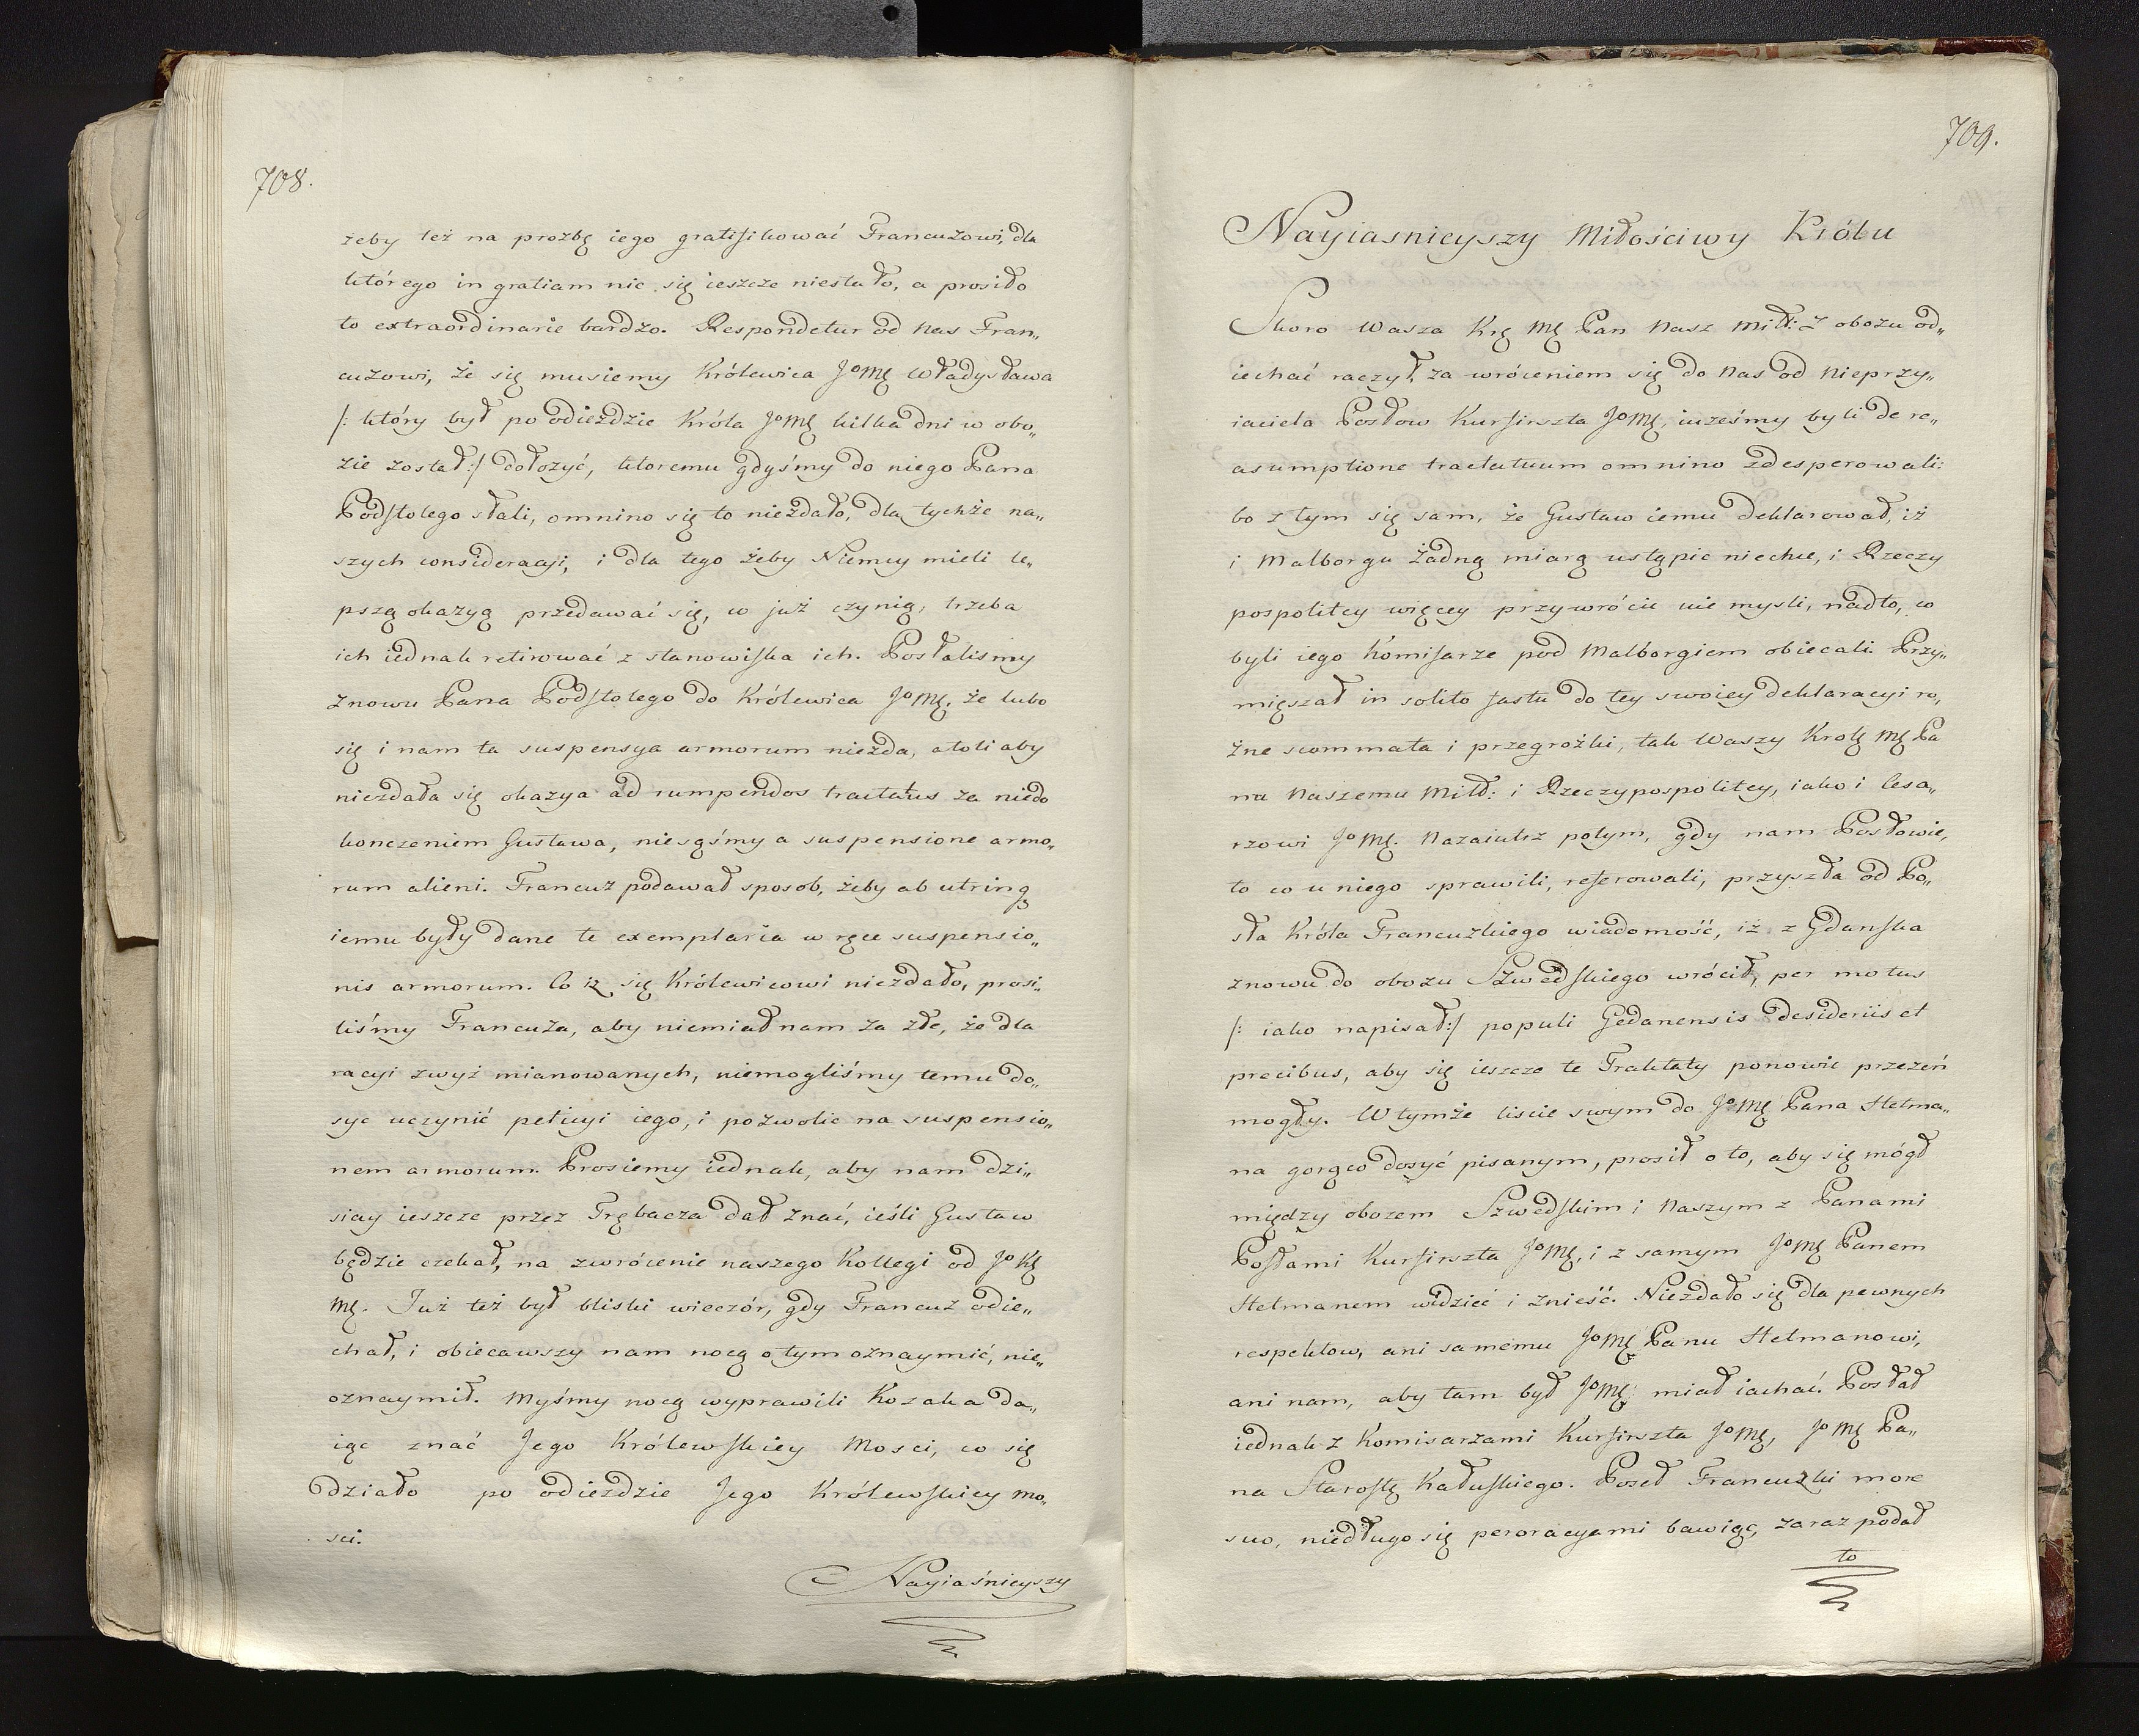 708.
żeby też na prozbę iego gratifikować Francuzowi, dla
którego in gratiam nic się ieszcze niestało, a prosiło
to extraordinarie bardzo. Respondetur od nas Fran„
cuzowi, że się musiemy Królewica JoMę Władysława
/: który był po odieździe Króla JoMę kilka dni w obo„
zie został :/ dołożyć, któremu gdyśmy do niego Pana
Podstolego słali, omnino się to niezdało, dla tychże na„
szych consideracji, i dla tego żeby Niemcy mieli le„
pszą okazyą przedawać się, co już czynią, trzeba
ich iednak retirować z stanowiska ich. Posłalismy
znowu Pana Podstolego do Królewica JoMę. że lubo
się i nam ta suspensya armorum niezda, atoli aby
niezdała się okazya ad rumpendos tractatus za niedo
konczeniem Gustawa, niesąśmy a suspensione armo„
rum alieni. Francuz podawał sposob, żeby ab utrinq
iemu były dane te exemplaria w ręce suspensio„
nis armorum. Co iz się Królewicowi niezdało, prosi„
liśmy Francuza, aby niemiał nam za złe, że dla
racyi zwyż mianowanych, niemogliśmy temu do„
syc uczynić peticyi iego, i pozwolic na suspensio„
nem armorum. Prosiemy iednak, aby nam dzi„
siay ieszcze przez Trębacza dał znać, ieśli Gustaw
będzie czekał, na zwrócenie naszego Kollegi od Jo Kę
Mę. Już też był bliski wieczór, gdy Francuz odie„
chał, i obiecawszy nam nocą o tym oznaymić, nie„
oznaymił. Myśmy nocą wyprawili Kozaka da„
iąc znać Jego Królewskiey Mosci, co się
działo po odieździe Jego Królewskiey Mo„
sci.
Nayiaśnieyszy
709.
Nayiasnieyszy Miłościwy Królu
Skoro Wasza Krę Mę Pan Nasz Mił: z obozu od„
iechać raczył, za wróceniem się do Nas od Nieprzy„
iaciela Posłow Kurfirszta JoMę, iużeśmy byli de re„
asumptione tractatuum omnino zdesperowali:
bo z tym się sam, że Gustaw iemu deklarował, iż
i Malborga żadną miarą ustąpic niechce, i Rzeczy
pospolitey więcey przywrócic nie mysli, nadto, co
byli iego Komisarze pod Malborgiem obiecali. Przy„
mięszał in solito fastu do tey swoiey deklaracyi ro„
żne scommata i przegrożki, tak Waszy Krolę Mę Pa
nu Naszemu Mił: i Rzeczypospolitey, iako i Cesa„
rzowi JoMę. Nazaiutrz potym, gdy nam Posłowie,
to co u niego sprawili, referowali, przyszła od Po„
sła Króla Francuzkiego wiadomość, iż z Gdanska
znowu do obozu Szwedskiego wrócił, per motus
/: iako napisał :/ populi Gedanensis desideriis et
precibus, aby się ieszcze te Traktaty ponowic przezeń
mogły. W tymże liscie swym do JoMę Pana Hetma„
na gorąco dosyć pisanym, prosił o to, aby się mógł
między obozem Szwedskim i Naszym z Panami
Posłami Kurfirszta JoMę, i z samym JoMę Panem
Hetmanem widzieć i znieść. Niezdało się dla pewnych
respektow, ani samemu JoMę Panu Hetmanowi,
ani nam, aby tam był JoMę miał iachać. Posłał
iednak z Komisarzami Kurfirszta JoMę, JoMę Pa„
na Starostę Kałuskiego. Poseł Francuzki more
suo, niedługo się peroracyami bawiąc, zaraz podał
to